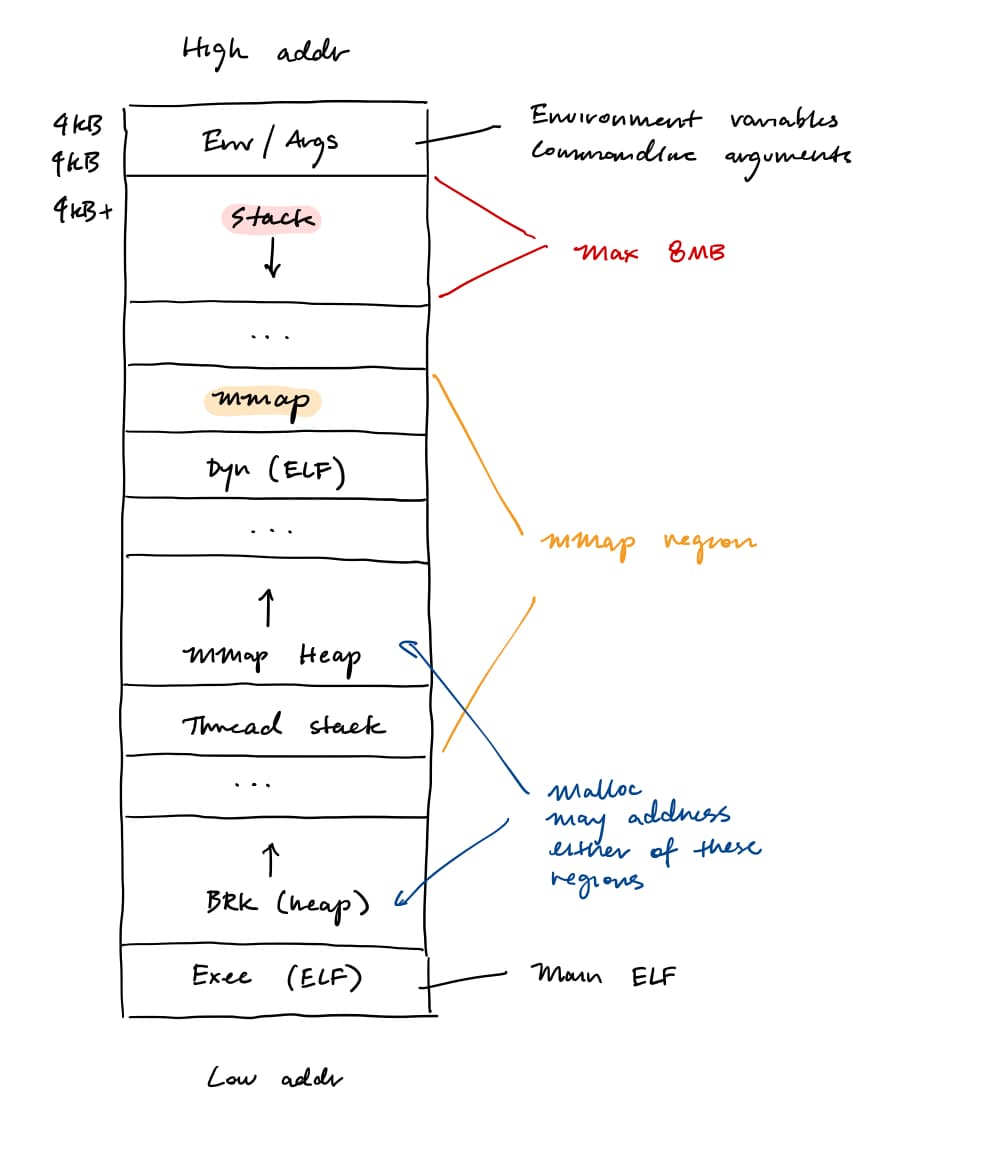 High addr
4kB
4kB
4kB+
Env / Args
Environment variables
Commandline arguments
Stack
↓
Max 8MB
...
mmap
Dyn (ELF)
...
mmap region
↑
mmap Heap
Thread stack
...
Malloc
may address
either of these
regions
↑
BRK (heap)
Exec (ELF)
Main ELF
Low addr